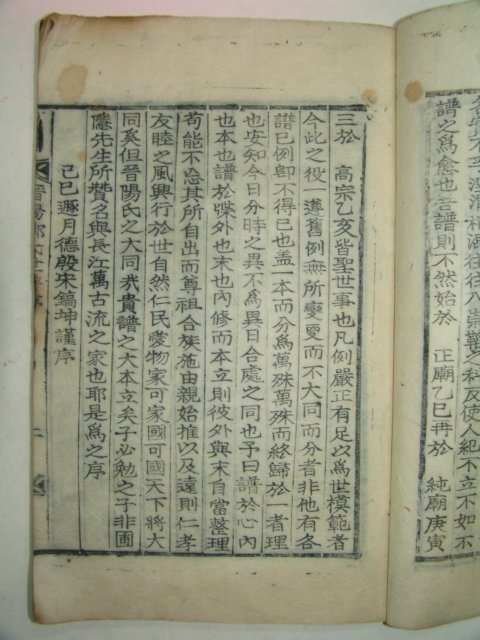 譜之爲愈也吾譜則不然始於 正廟乙巳再於 純廟庚寅
三於 高宗乙亥皆聖世事也凡例嚴正有足以爲世模範者
今此之役一遵舊例無所變更而不大同而分者非他有各
譜已例卽不得已也盖一本而分爲萬殊萬殊而終歸於一者理
也安知今日分時之異不爲異日合處之同也予曰譜於心內
也本也譜於牒外也末也內修而本立則彼外與末自當整理
苟能不忘其所自出而尊祖合族施由親始推以及遠則仁孝
友睦之風興行於世自然仁民愛物家可家國可國天下將大
同奚但晉陽氏之大同哉貴譜之大本立矣子必勉之子非圃
隱先生所贊名與長江萬古流之家也耶是爲之序
己巳 月德殷宋鎬坤謹序